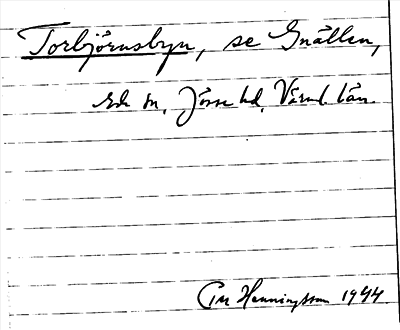 Torbjörnsbyn, se Gnällen,
Eda sn, Jösse hd, Värml. län.
GM Henningsson 1944